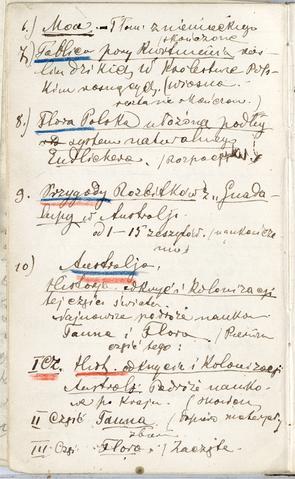 6.) Moa. – Tłom: z niemieckiego
skończone
7.) Tablica pory kwitnienia roś-
lin dzikich w Królestwie Pols-
kim rosnących (wiosna
reszta nie skończon.)
8.) Flora Polska ułożona podług
systemu naturalnego
Endlichera. (rozpoczęt
9. Przygody Rozbitków z „Guada-
lupy w Australji.
od 1–15 zeszytów. / nieukończone
10) Australja.
Historja odkryć i kolonizacji
tej części świata.
Najnowsze podróże nauko-
Fauna i Flora. (Pierwsza
część tego:
I Cz. Hist. odkrycia i kolonizacji
Australji. Podróże nauko-
we po kraju. (skończon
II Część Fauna. / Dopiero materjały
zbier.
III Część Flora. / Zaczęta.